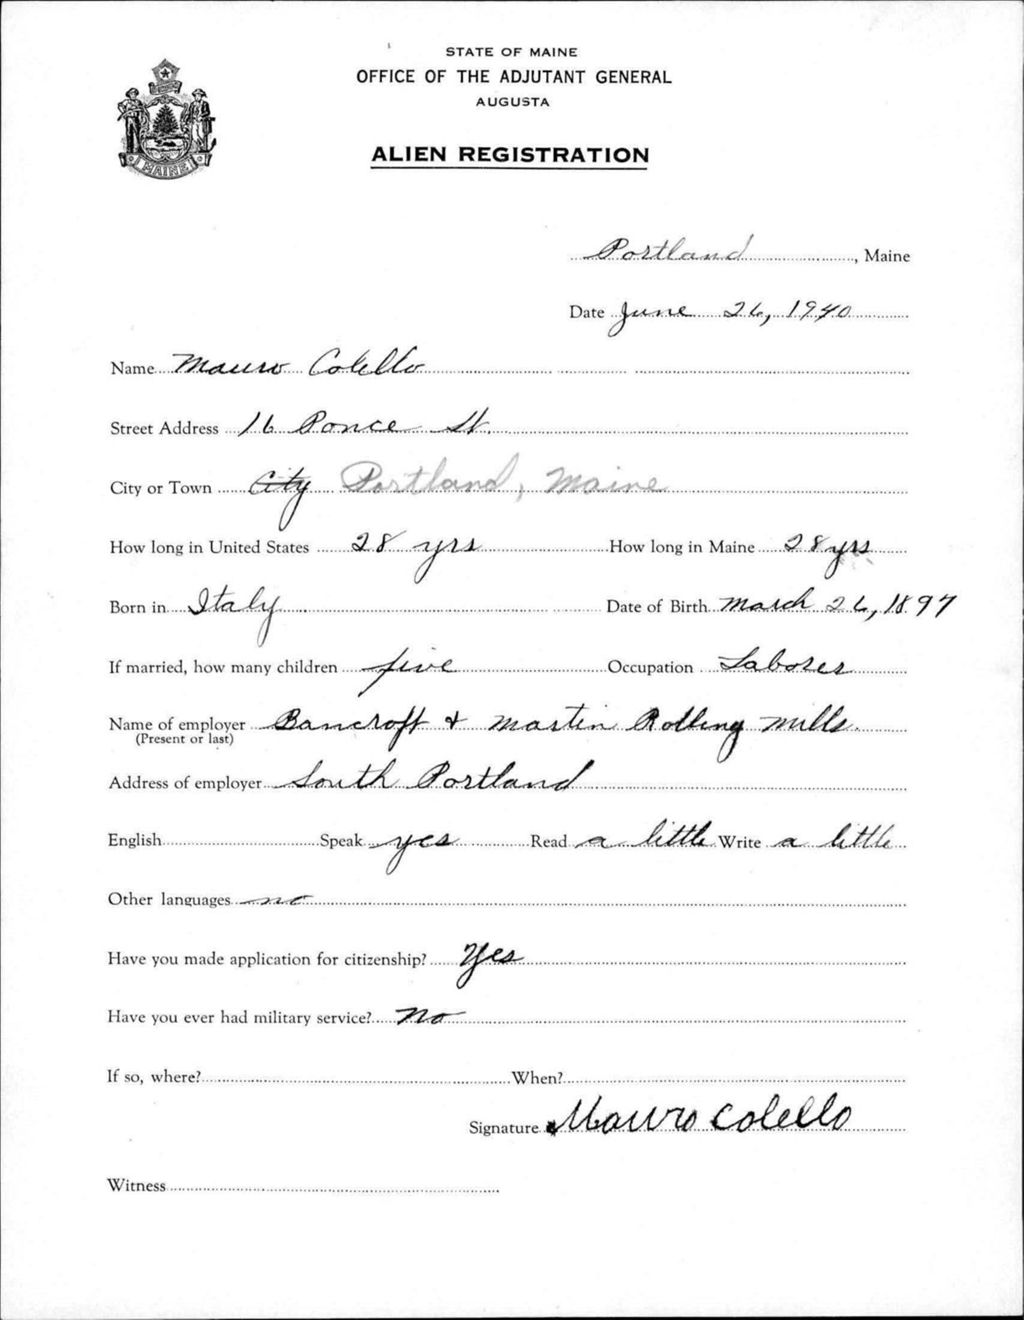 STATE OF MAINE
OFFICE OF THE ADJUTANT GENERAL
AUGUSTA
ALIEN REGISTRATION
MAINE
Portland, Maine
Date June 26, 1940
Name Mauro Colello
Street Address 16 Ponce St.
City or Town City Portland, Maine
How long in United States 28 yrs How long in Maine 28 yrs
Born in Italy Date of Birth March 26, 1897
If married, how many children five Occupation Laborer
Name of employer Bancroft + Martin Rolling Mills.
(Present or last)
Address of employer South Portland
English Speak yes Read a little Write a little
Other languages no
Have you made application for citizenship? Yes
Have you ever had military service? No
If so, where? When?
Signature Mauro Colello
Witness